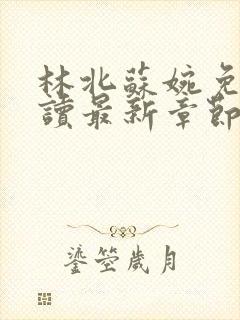 林北蘇婉免
讀最新章節
鎏筌歲月